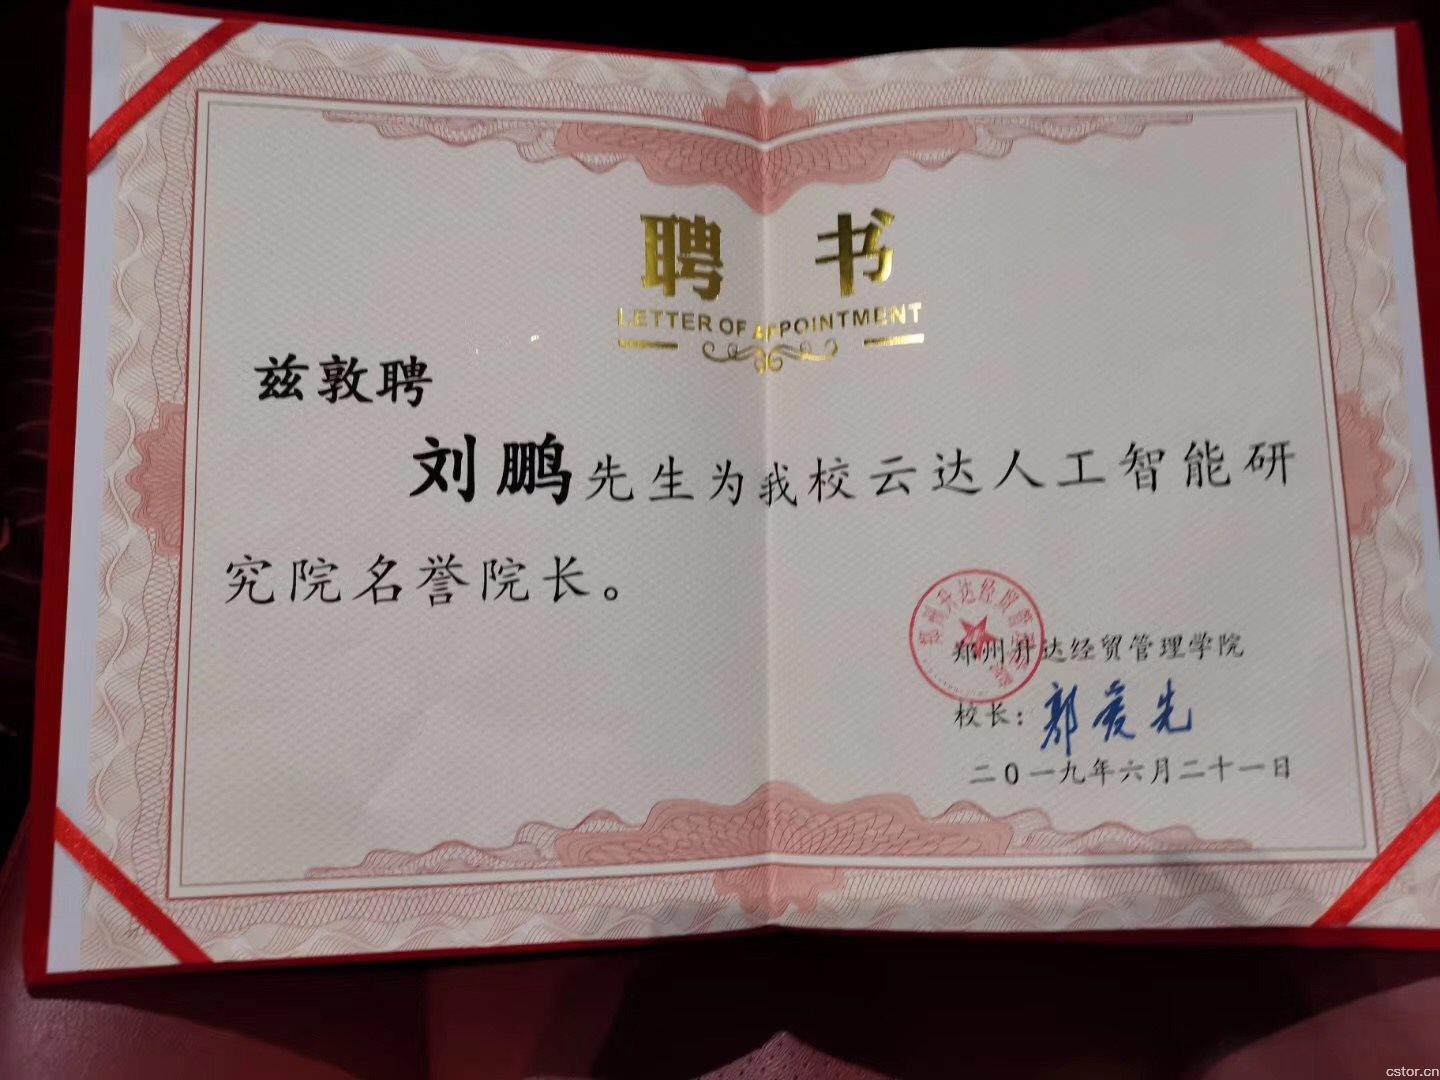 聘书
LETTER OF APPOINTMENT
兹敦聘
刘鹏先生为我校云达人工智能研
究院名誉院长。
郑州升达经贸管理学院
郑州升达经贸管理学院
校长：郭爱先
二0一九年六月二十一日
cstor.cn